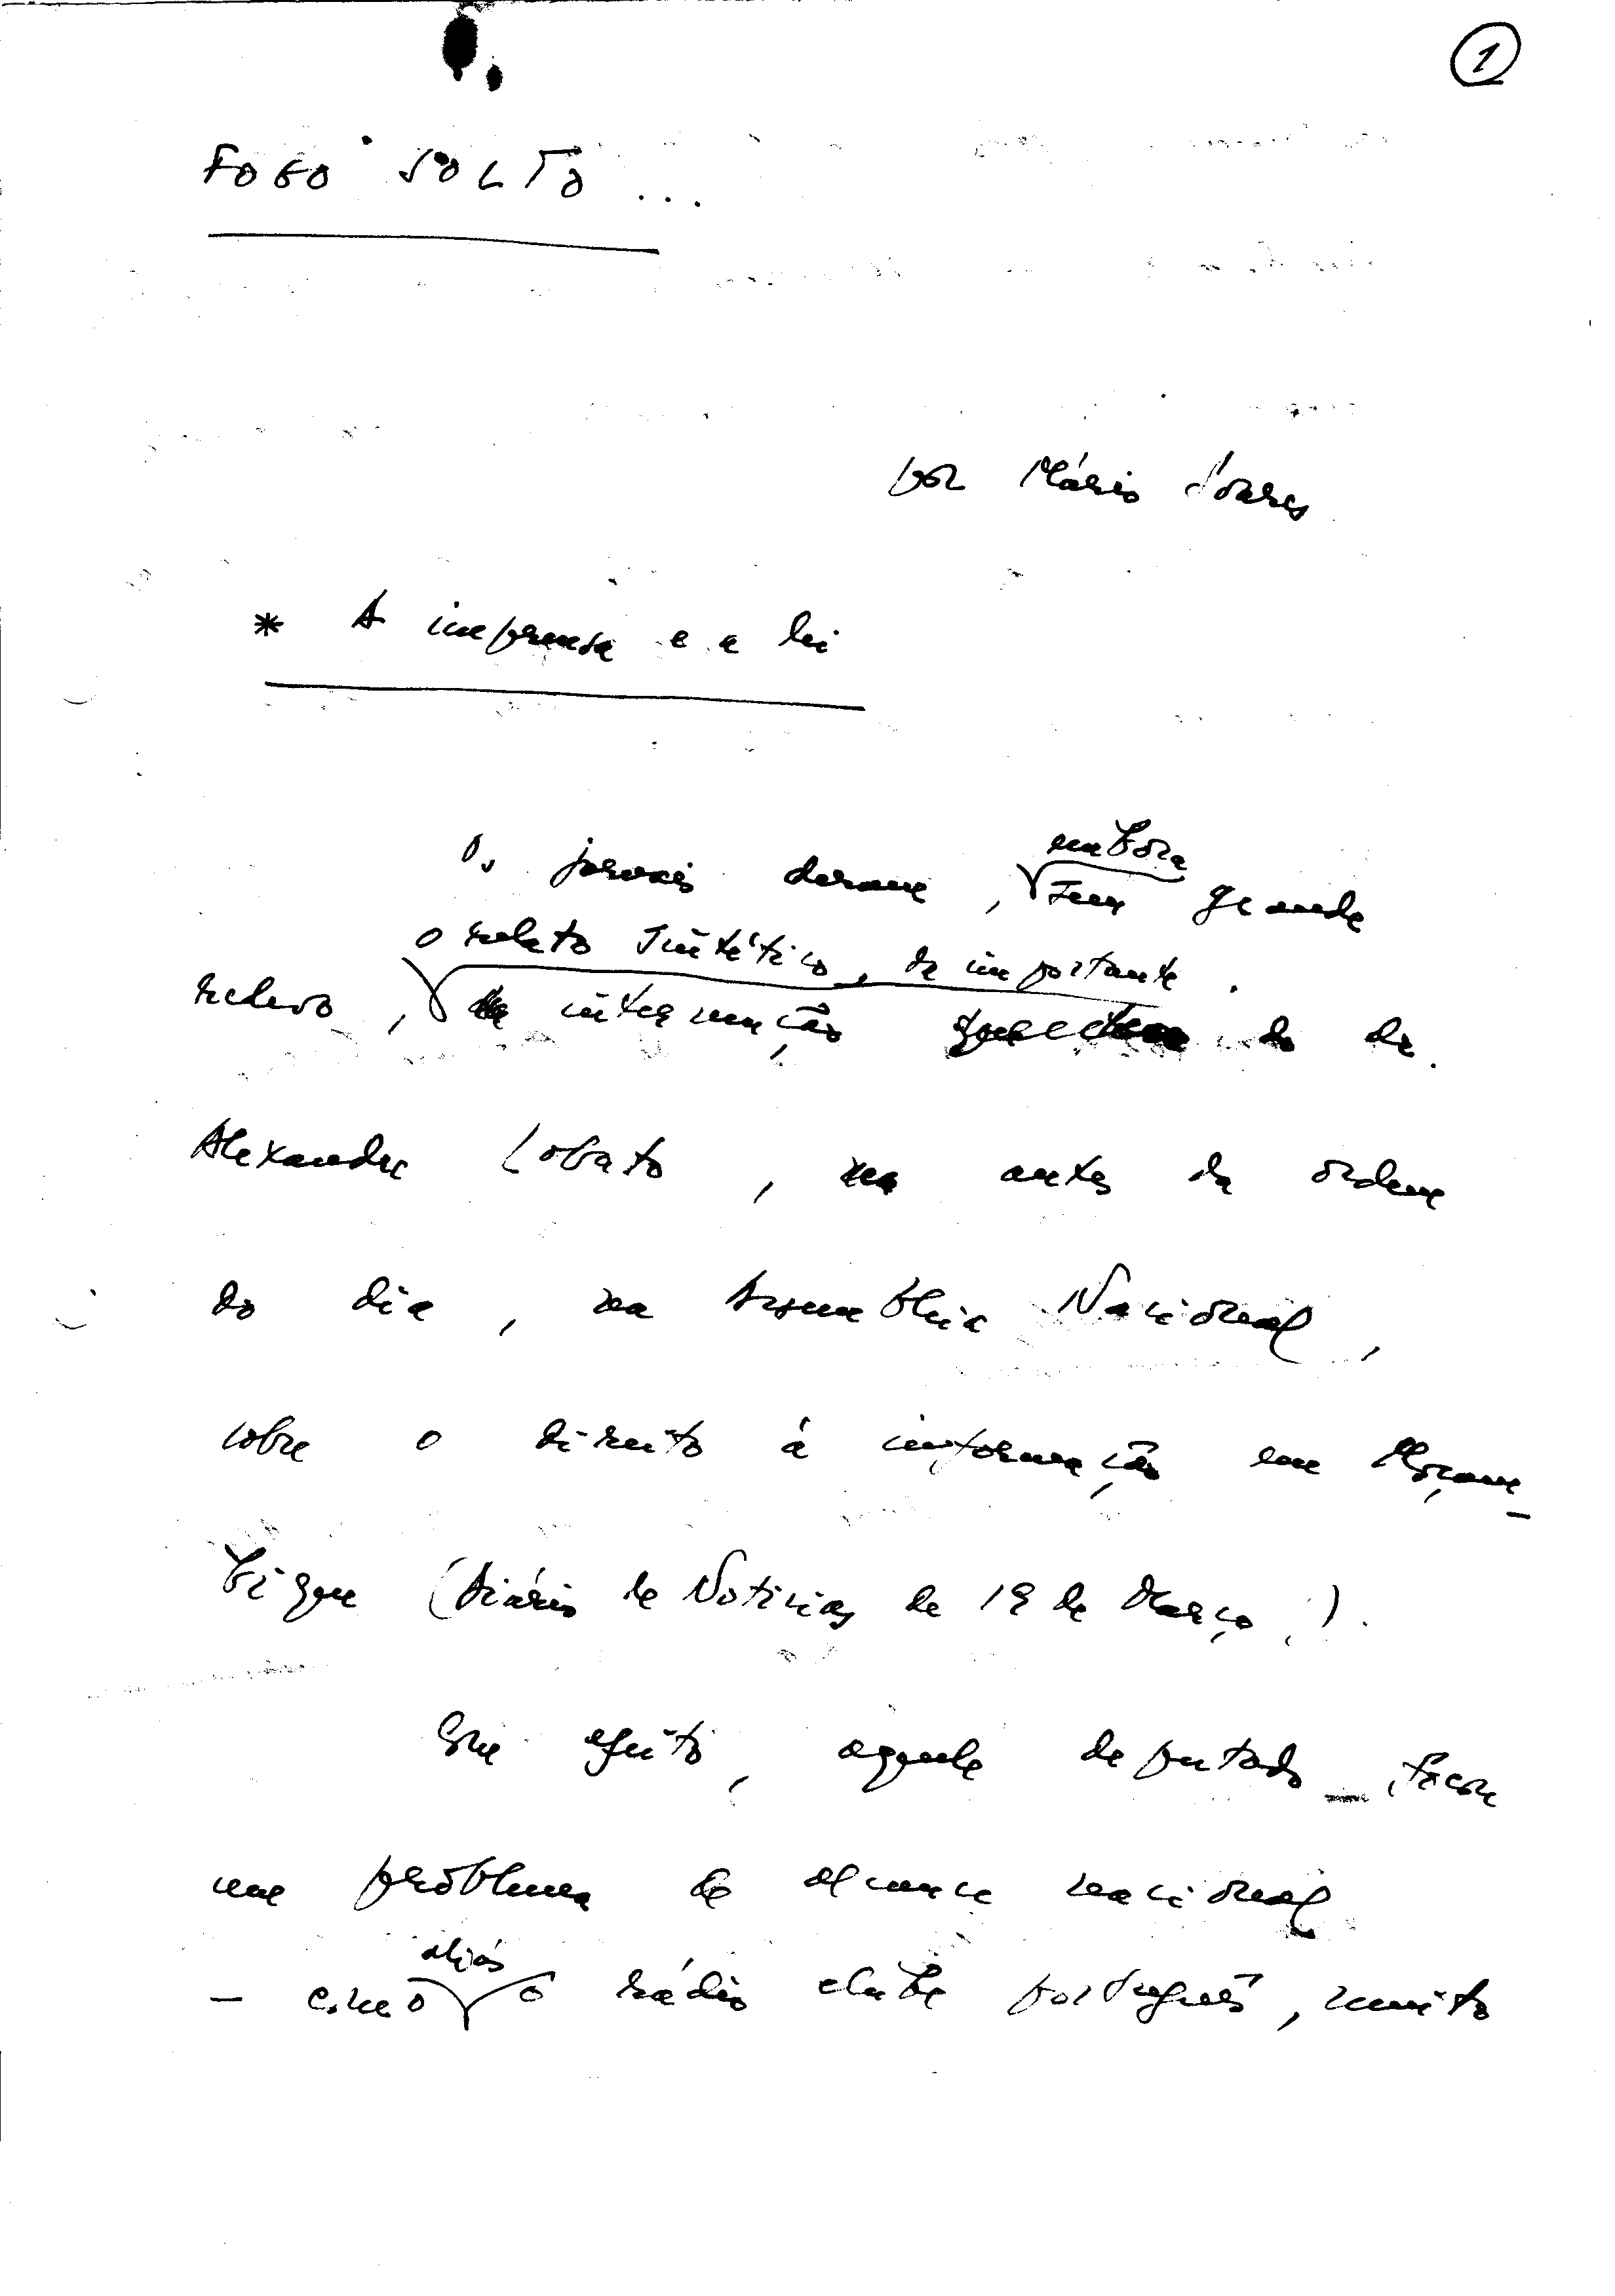 1
FOGO SOLTO...
por Mário Soares
* A imprensa e a lei
embora
Os jornais deram, sem grande
o relato sintético, da importante
relevo, da intervenção do dr.
Alexandre Lobato, no antes da ordem
do dia, na Assembleia Nacional,
sobre o direito à informação em Moçam-
bique (Diário de Notícias de 19 de Março).
Em efeito, aquele deputado focou
um problema de alcance nacional
aliás
- como o rádio clube português, muito